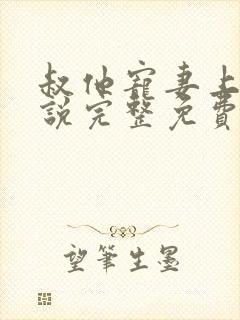 叔他寵妻上
說完整免費
望筆生墨